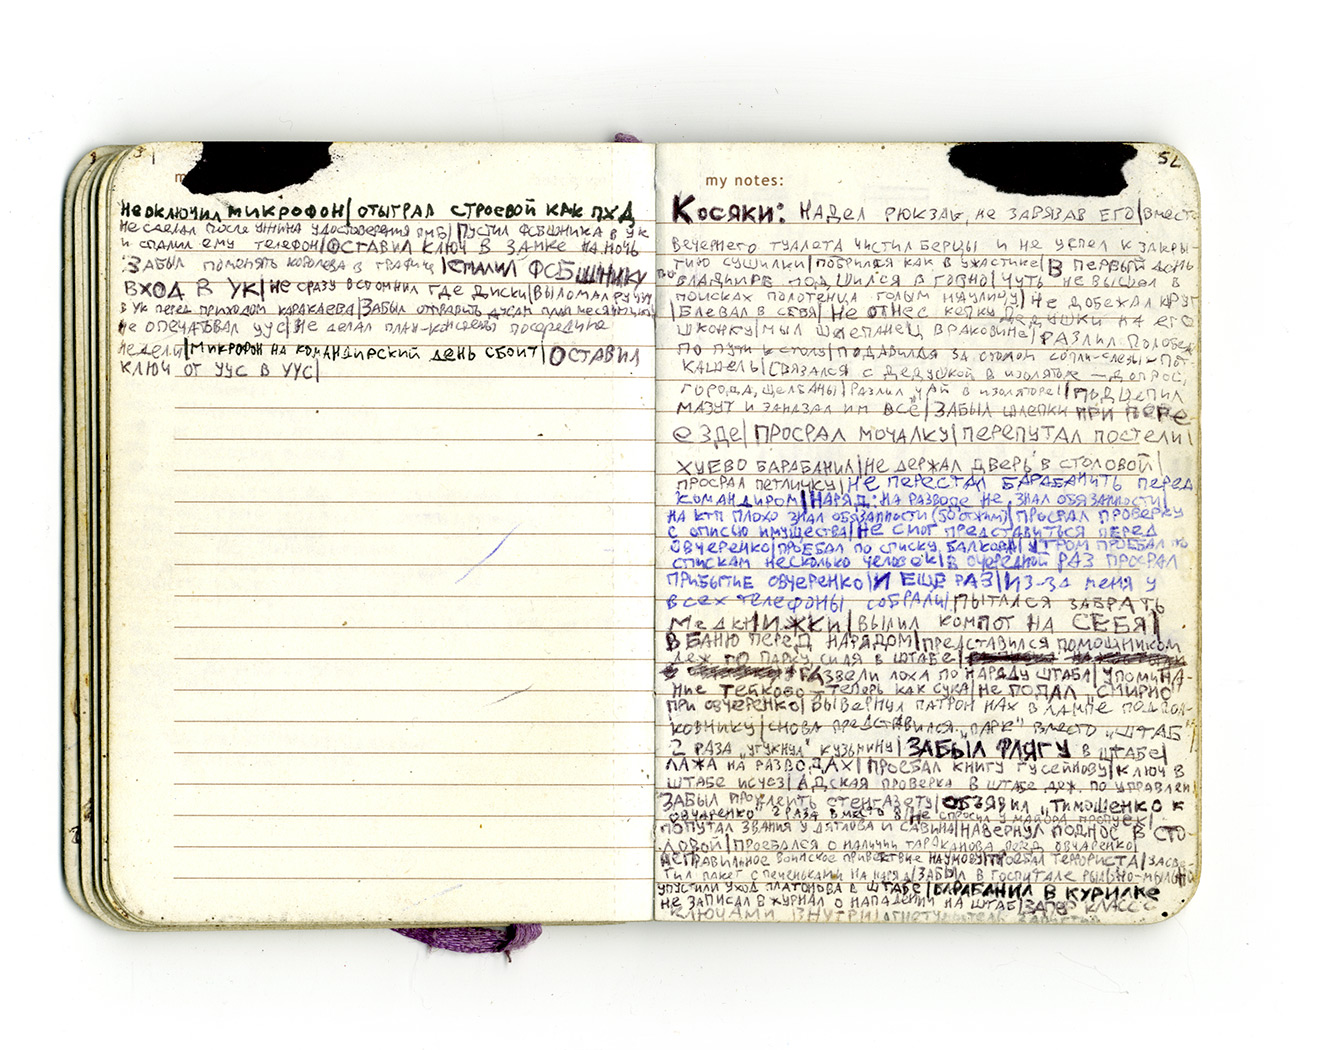 51
неоключил микрофон| отыграл строевой как ПХД
не сделал после удостоверения |пустил ФСБшника в УК
и спалил ему телефон|оставил ключ в замке на ночь
забыл поменять королева в графике |спалил ФСБшнику
вход в УК|не сразу вспомнил где диски|выломал ручку
в УК перед приходом каракаева|забыл отправить план месяч
не опечатовал УУС|не делал план-конспекты посередине
недели|микрофон на командирский день сбоит|оставил
ключ от УУС в УУС|
52
my notes:
Косяки: надел рюкзак, не зарязав его|вместо
вечернего туалета чистил берцы и не успел к закры-
тию сушилки|побрился как в участике|в первый день
во владимире подшился в говно| чуть не высцал в
поисках полотенца голым на улицу| не добежал круг
|блевал в себя| не отнес кепку дедушки на его
шконку|мыл шлепанец в раковине| разлил
по пути к столу|подавился за столом сопли-слезы-пот-
кашель|связался с дедушкой в изоляторе – допрос,
города, щелбаны|разлил чай в изоляторе| подцепил
мазут и заказал им всё| забыл шлепки при пере
езде|просрал мочалку|перепутал постели|
хуево барабанил|не держал дверь в столовой|
просрал петличку| не перестал барабанить перед
командиром|наряд: на разводе не знал обязанности|
на КТП плохо знал обязанности (50 отжим)|просрал проверку
с описью имущества|не смог представиться перед
овчеренко|проебал по списку балкора| утром проебал по
спискам несколько человек|в очередной раз просрал
прибытие овчеренко|и еще раз|из-за меня у
всех телефоны собрали|пытался забрать
медкнижки|вылил компот на себя|
в баню перед нарядом|представился помощником
деж по парку сидя в штабе|
развели лоха по наряду штаба| упомина-
ние тейково – теперь как сука|не подал "смирно"
при овчеренко|вывернул патрон нах в лампе подпол-
ковнику|снова представился "парк" вместо "штаб"|
2 раза "угукнул" кузьмину| забыл флягу в штабе|
лажа на разводах| проебал книгу гусейнову|ключ в
штабе исчез|адская проверка в штабе деж. по управлен
забыл проклеить стенгазету|объявил "тимошенко к
овчаренко" 2 раза вместо |не спросил у майора пропуск|
попутал звания у дятлова и савина|навернул поднос в сто-
ловой|проебался о наличии тараканова перед овчаренко|
неправильное воинское приветствие наумову|проебал террориста|засве-
тил пакет с печеньками на наряд|забыл в госпитале рыльно-мыльно
упустили уход платонова в штабе|барабанил в курилке
не записал в журнал о нападении на штаб|запер класс с
ключами внутри|огнетушитель